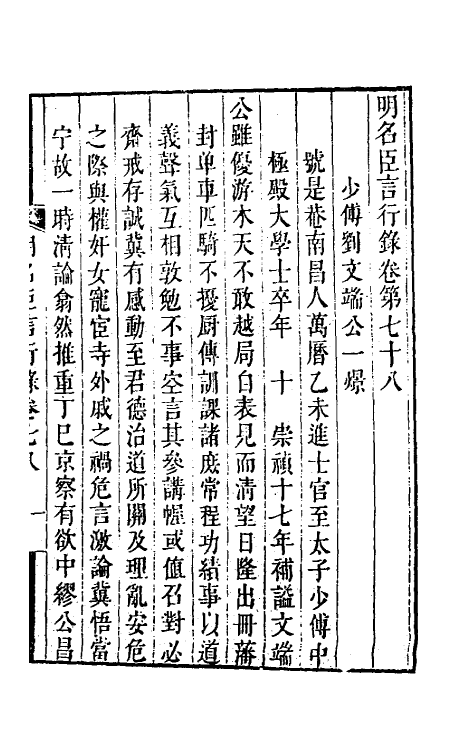 明名臣言行錄卷第七十八
少傅劉文端公一燝
號是菴南昌人萬曆乙未進士官至太子少傅中
極殿大學士卒年　十　崇禎十七年補諡文端
公雖優游木天不敢越局自表見而清望日隆出冊藩
封单車匹騎不擾厨傳訓課諸庶常程功績事以道
義聲氣互相敦勉不事空言其參講幄或値召對必
齋戒存誠冀有感動至君德治道所關及理亂安危
之際與權奸女寵宦寺外戚之禍危言激論冀悟當
宁故一時淸論翕然推重丁巳京察有欲中繆公昌
明名臣言行錄卷七八　一